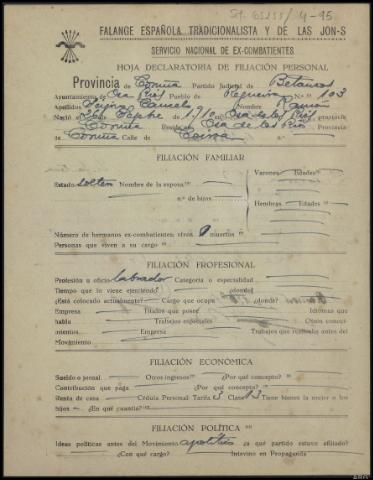 FALANGE ESPAÑOLA TRADICIONALISTA Y DE LAS JON-S
SERVICIO NACIONAL DE EX-COMBATIENTES
HOJA DECLARATORIA DE FILIACIÓN PERSONAL
Provincia de Coruña Partido Judicial de Betanzos
Ayuntamiento de Oza Rios Pueblo de Regueira N.º 103
Apellidos Nombre Ramón
Nació 26 Sepbre de 1910 en Oza de los Rios provincia
Coruña Reside en Oza de los Rios Provincia
de Coruña Calle de
FILIACIÓN FAMILIAR
Estado soltero Nombre de la esposa
n.º de hijos
Varones Edades
Hembras Edades
Número de hermanos ex-combatientes vivos muertos
Personas que viven a su cargo
FILIACIÓN PROFESIONAL
Profesión u oficio labrador Categoría o especialidad
Tiempo que lo viene ejerciendo ¿donde?
¿Está colocado actualmente? Cargo que ocupa ¿donde?
Empresa Títulos que posee Idiomas que
habla Trabajos especiales Otros conoci-
mientos Empresa Trabajos que realizaba antes del
Movimiento
FILIACIÓN ECONÓMICA
Sueldo o jornal Otros ingresos ¿Por qué concepto?
Contribución que paga ¿Por qué concepto?
Renta de casa Cédula Personal Tarifa 3 Clase 13 Tiene bienes la mujer o los
hijos ¿En qué cuantía?
FILIACIÓN POLÍTICA
Ideas políticas antes del Movimiento apolítico ¿a qué partido estuvo afiliado?
¿Con qué cargo? Intervino en Propaganda